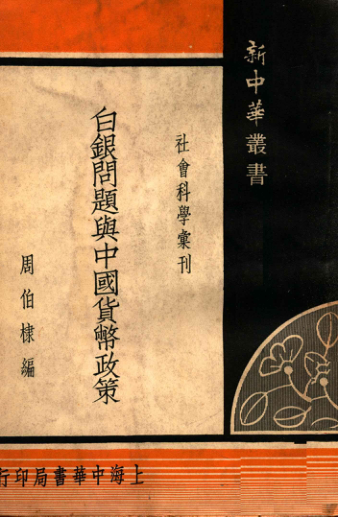 新中華叢書
社會科學彙刊
白銀問題與中國貨幣政策
周伯棣編
上海中華書局印行